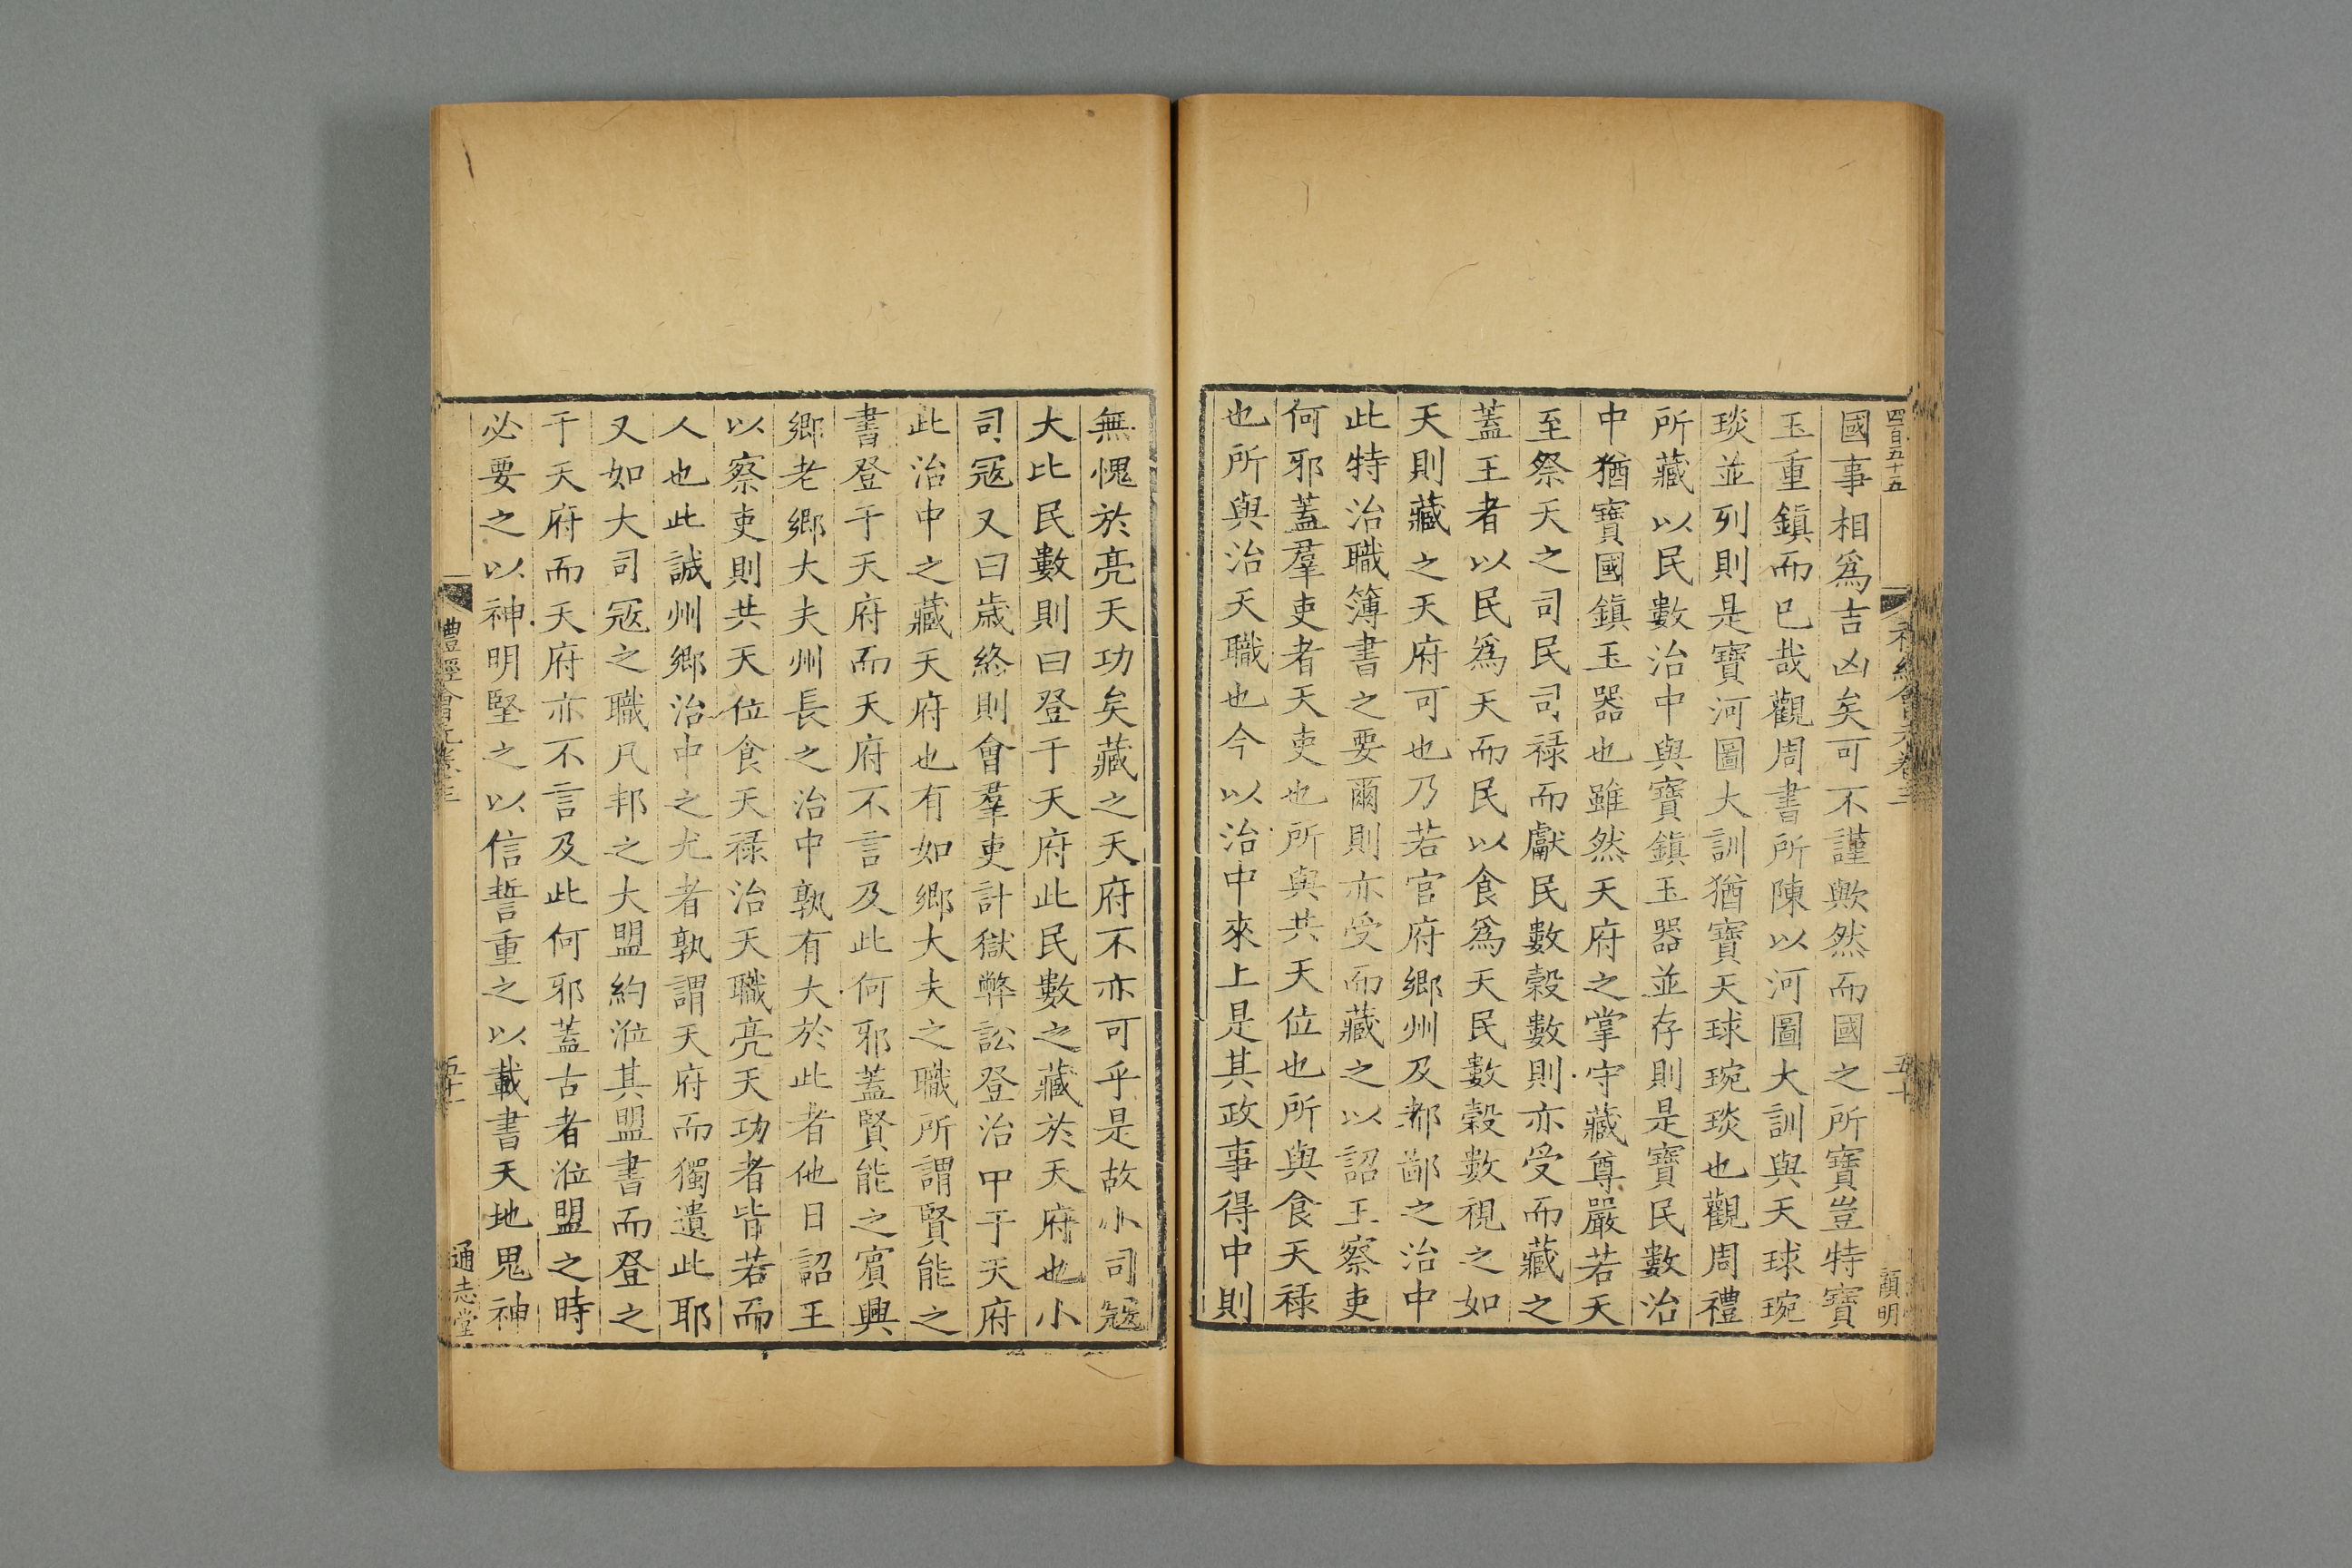 四百五十五
禮經會元卷三
五十
顏明
國事相爲吉凶矣可不謹歟然而國之所寶豈特寶
玉重鎮而已哉觀周書所陳以河圖大訓與天球琬
琰並列則是寶河圖大訓猶寶天球琬琰也觀周禮
所藏以民數治中與寶鎮玉器並存則是寶民數治
中猶寶國鎮玉器也雖然天府之掌守藏尊嚴若天
至祭天之司民司祿而獻民數穀數則亦受而藏之
蓋王者以民爲天而民以食爲天民數穀數視之如
天則藏之天府可也乃若官府鄉州及都鄙之治中
此特治職簿書之要爾則亦受而藏之以詔王察吏
何邪蓋羣吏者天吏也所與共天位也所與食天祿
也所與治天職也今以治中來上是其政事得中則
無愧於亮天功矣藏之天府不亦可乎是故小司寇
大比民數則曰登于天府此民數之藏於天府也小
司寇又曰歲終則會羣吏計獄弊訟登治中于天府
此治中之藏天府也有如鄉大夫之職所謂賢能之
書登于天府而天府不言及此何邪蓋賢能之賓興
鄉老鄉大夫州長之治中孰有大於此者他日詔王
以察吏則共天位食天祿治天職亮天功者皆若而
人也此誠州鄉治中之尤者孰謂天府而獨遺此耶
又如大司寇之職凡邦之大盟約涖其盟書而登之
于天府而天府亦不言及此何邪蓋古者涖盟之時
必要之以神明堅之以信誓重之以載書天地鬼神
禮經會元卷三
五十一
通志堂